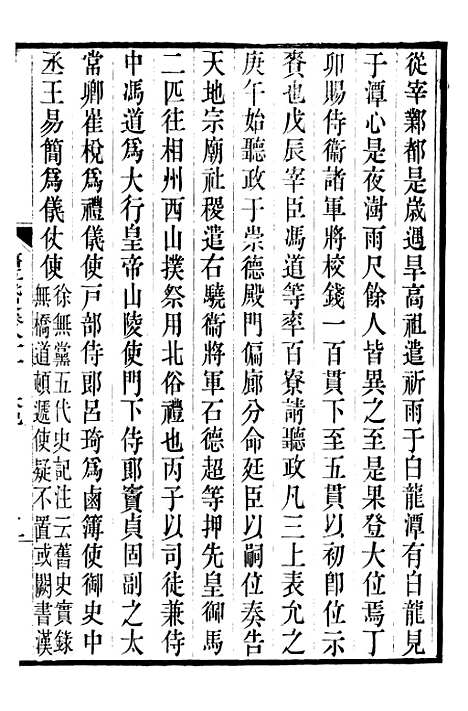 從宰鄴都是歲遇旱高祖遣祈雨于白龍潭有白龍見
于潭心是夜澍雨尺餘人皆異之至是果登大位焉丁
卯賜侍衞諸軍將校錢一百貫下至五貫以初卽位示
賚也戊辰宰臣馮道等率百寮請聽政凡三上表允之
庚午始聽政于崇德殿門偏廊分命廷臣以嗣位奏告
天地宗廟社稷遣右驍衞將軍石德超等押先皇御馬
二匹往相州西山撲祭用北俗禮也丙子以司徒兼侍
中馮道爲大行皇帝山陵使門下侍郎竇貞固副之太
常卿崔梲爲禮儀使戸部侍郎呂琦爲鹵簿使御史中
丞王易簡爲儀仗使
徐無黨五代史記注云舊史實錄
無橋道頓遞使疑不置或闕書漢